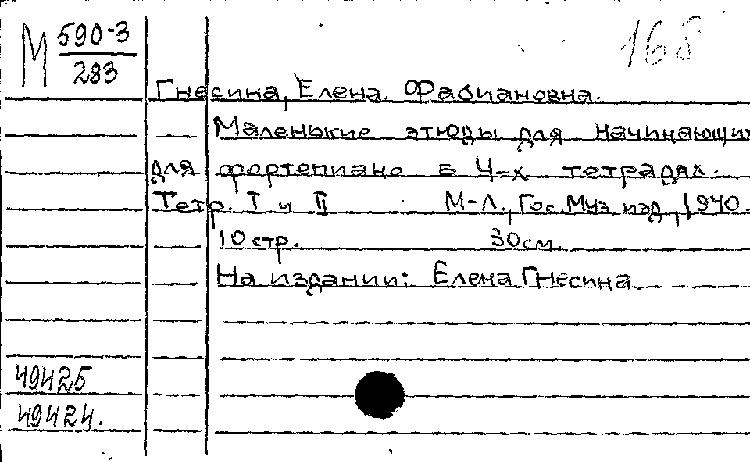 М 590-3
283
168
Гнесина, Елена Фабиановна.
Маленькие этюды для начинающих
для фортепиано в 4-х тетрадях.
Тетр. I и II М-Л., Гос. Муз. изд., 1940.
10 стр. 30 см.
На издании: Елена Гнесина.
49425
49424.